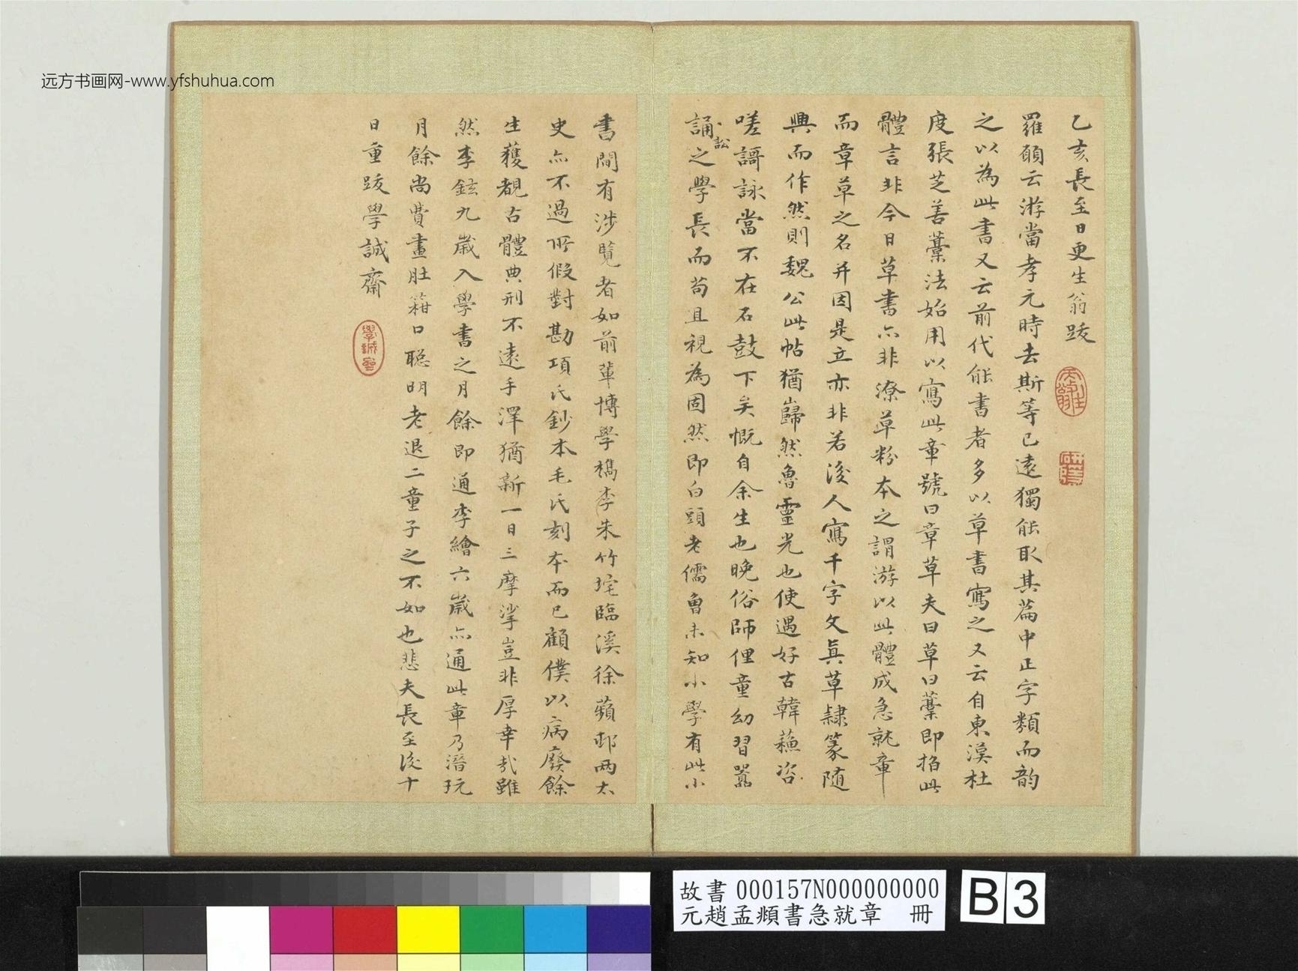 远方书画网-www.yfshuhua.com
乙亥長至日更生翁跋
羅願云游當孝元時去斯等已遠獨能取其篇中正字類而韵
之以為此書又云前代能書者多以草書寫之又云自東漢杜
度張芝善藁法始用以寫此章號曰章草夫曰草曰藁即招此
體言非今日草書亦非潦草粉本之謂游以此體成急就章
而章草之名并因是立亦非若後人寫千字文眞草隸篆隨
興而作然則魏公此帖猶巋然魯靈光也使遇好古韓蘓咨
嗟謌詠當不在石鼓下矣慨自余生也晚俗師俚童幼習嚣
訟
誦之學長而苟且視為固然即白頭老儒曾未知小學有此小
書間有涉覽者如前輩博學檇李朱竹垞臨溪徐蘋邨两太
史亦不過所假對勘項氏鈔本毛氏刻本而已顧僕以病廢餘
生獲覩古體典刑不遠手澤猶新一日三摩挲豈非厚幸哉雖
然李鉉九歲入學書之月餘即通李繪六歲亦通此章乃潛玩
月餘尚費畫肚箝口聪明老退二童子之不如也悲夫長至後十
日重跋學誠齋
學誠堂
故書 000157N000000000
元趙孟頫書急就章 冊
B3